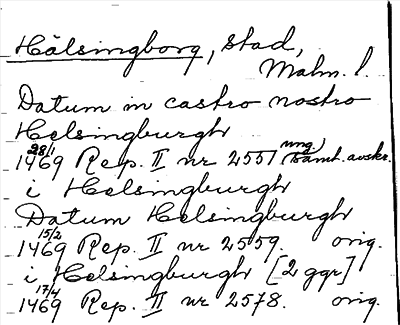 Hälsingborg, stad,
Malm. l.
Datum in castro nostro
Helsingburgh
28/1 1469 Rep. II nr 2557 ung. samt. avskr.
i Helsingburgh
Datum Helsingburgh
15/2 1469 Rep. II nr 2559. orig.
i Helsingburgh [2 ggr]
17/4 1469 Rep. II nr 2578. orig.